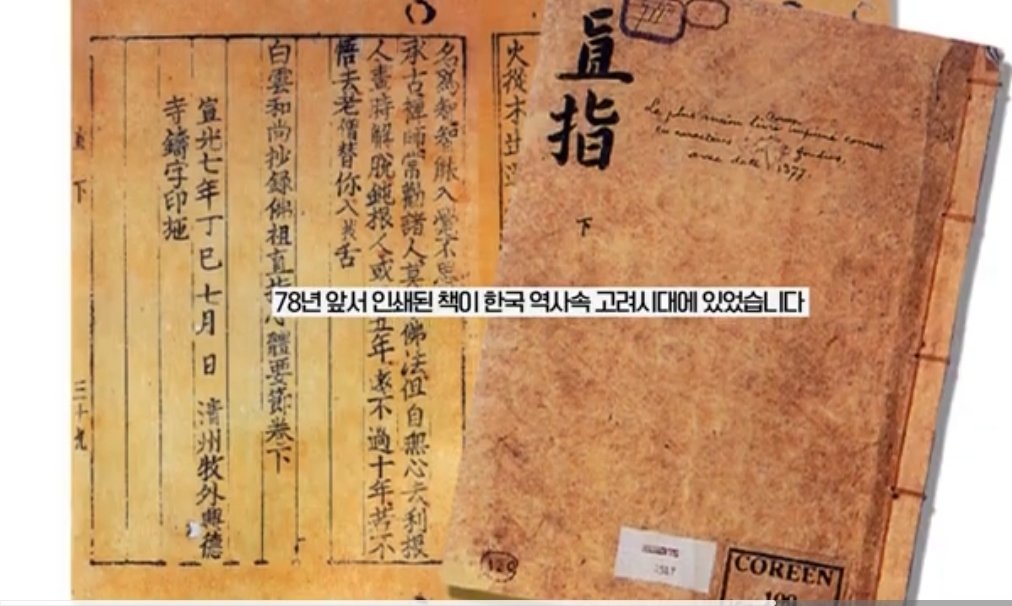 78년 앞서 인쇄된 책이 한국 역사속 고려시대에 있었습니다
古禪師常勸諸人莫 佛法但自無心去利根
人晝時解脫鈍根人或 五年遠不過十年若不
悟去老僧替你入拔舌
白雲和尚抄錄佛祖直指 體要節卷下
宣光七年丁巳七月 日 清州牧外興德
寺鑄字印施
下
三十九
直指
下
Le plus ancien livre imprimé connu
en caractères fondus,
avec date 1377.
COREEN
109